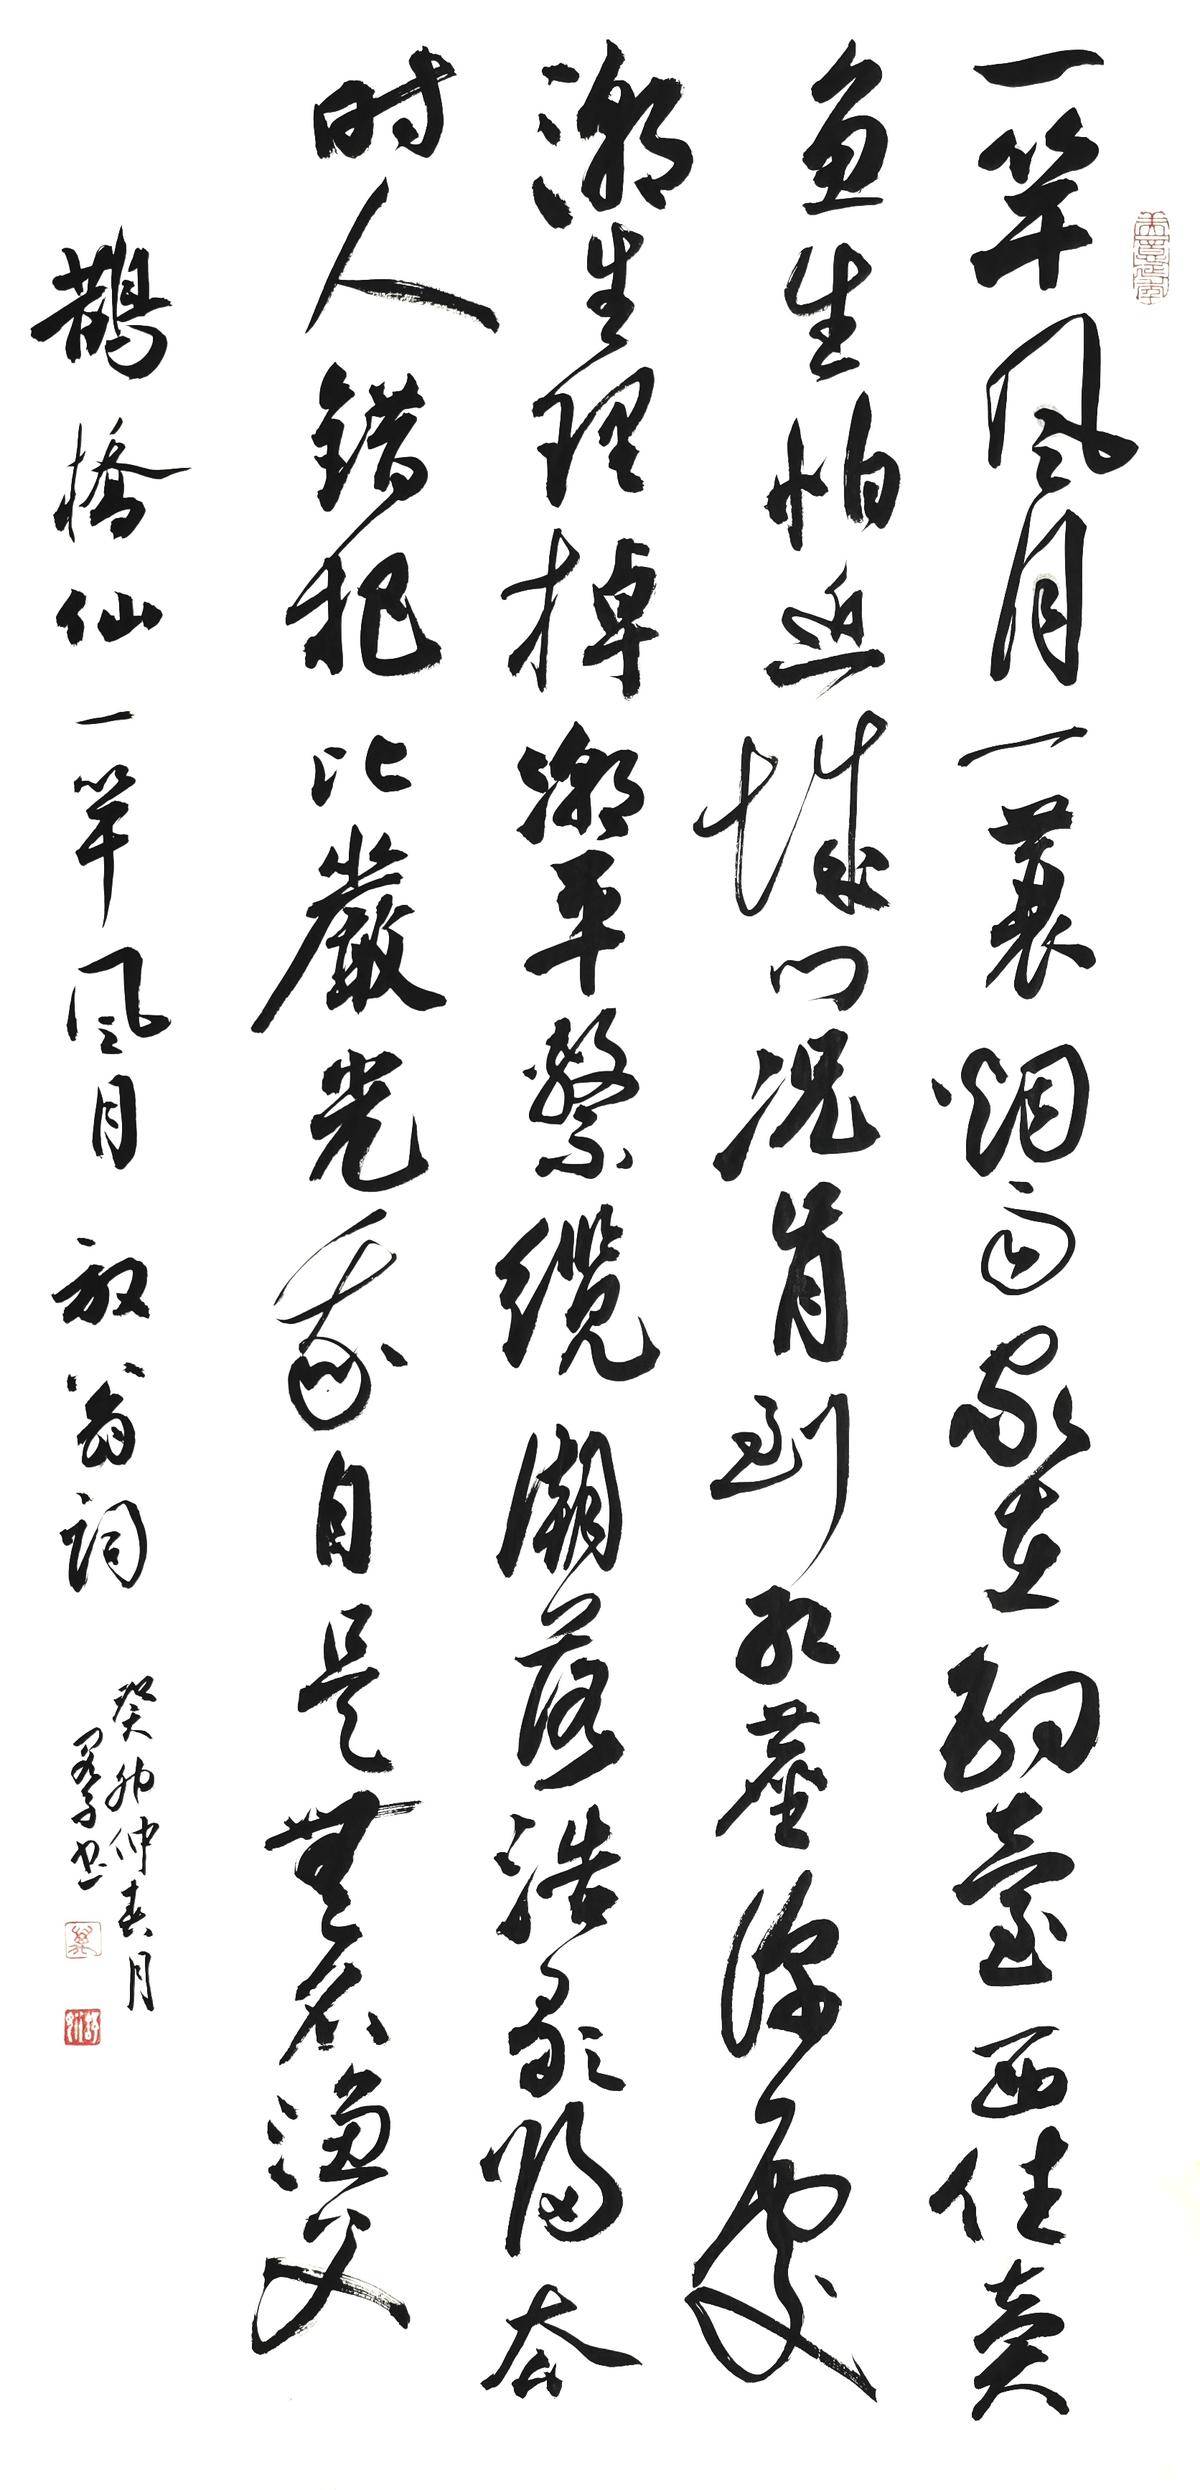 一竿风月一蓑烟雨家在钓臺西住卖
鱼生怕近城门况肯到红尘深處
潮生理掉潮平繫缆潮落浩歌归去
时人错把比嚴光我自是無名渔父
鹊橋仙一竿风月 放翁词
癸卯仲春月